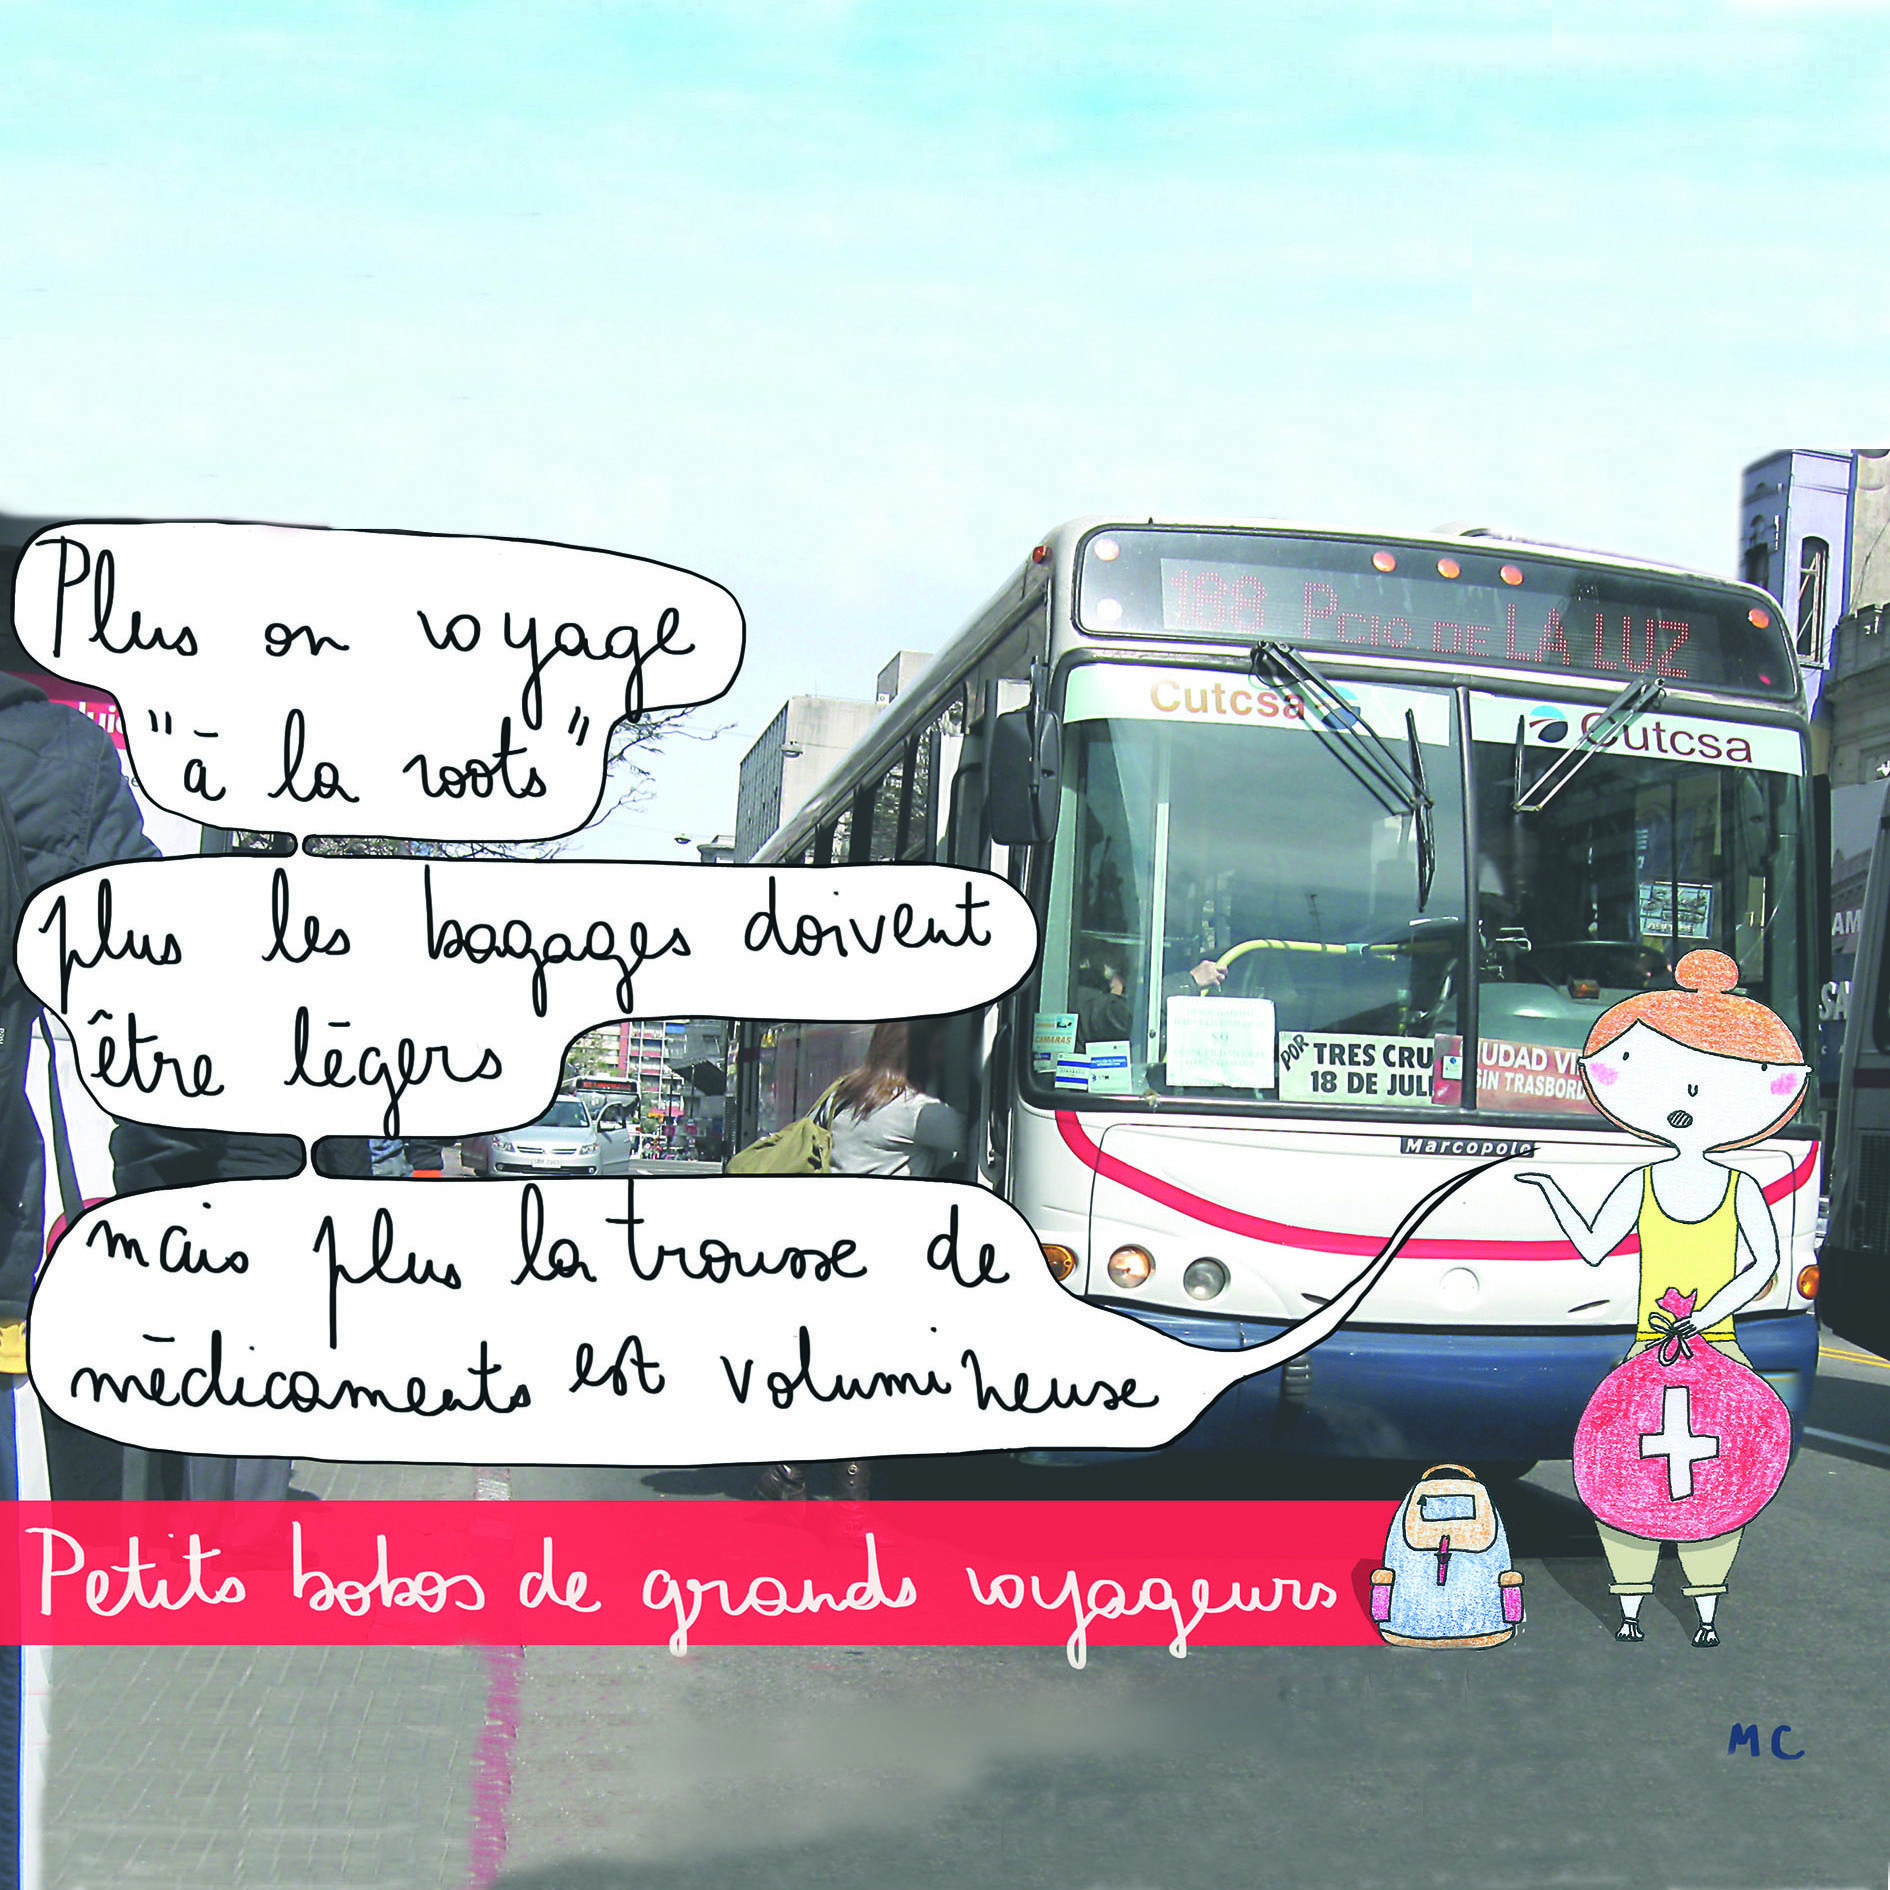 188 Pcio. DE LA LUZ
Cutcsa
Cutcsa
Plus on voyage
"à la roots"
plus les bagages doivent
être légers
POR TRES CRU
18 DE JULI
UDAD VI
SIN TRASBORD
Marcopolo
mais plus la trousse de
médicaments est volumineuse
Petits bobos de grands voyageurs
MC